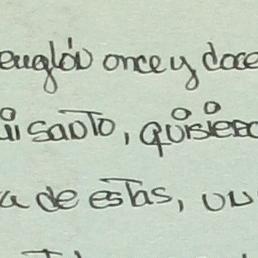 renglón once y doce
mi santo, quisiera
a de estas, un